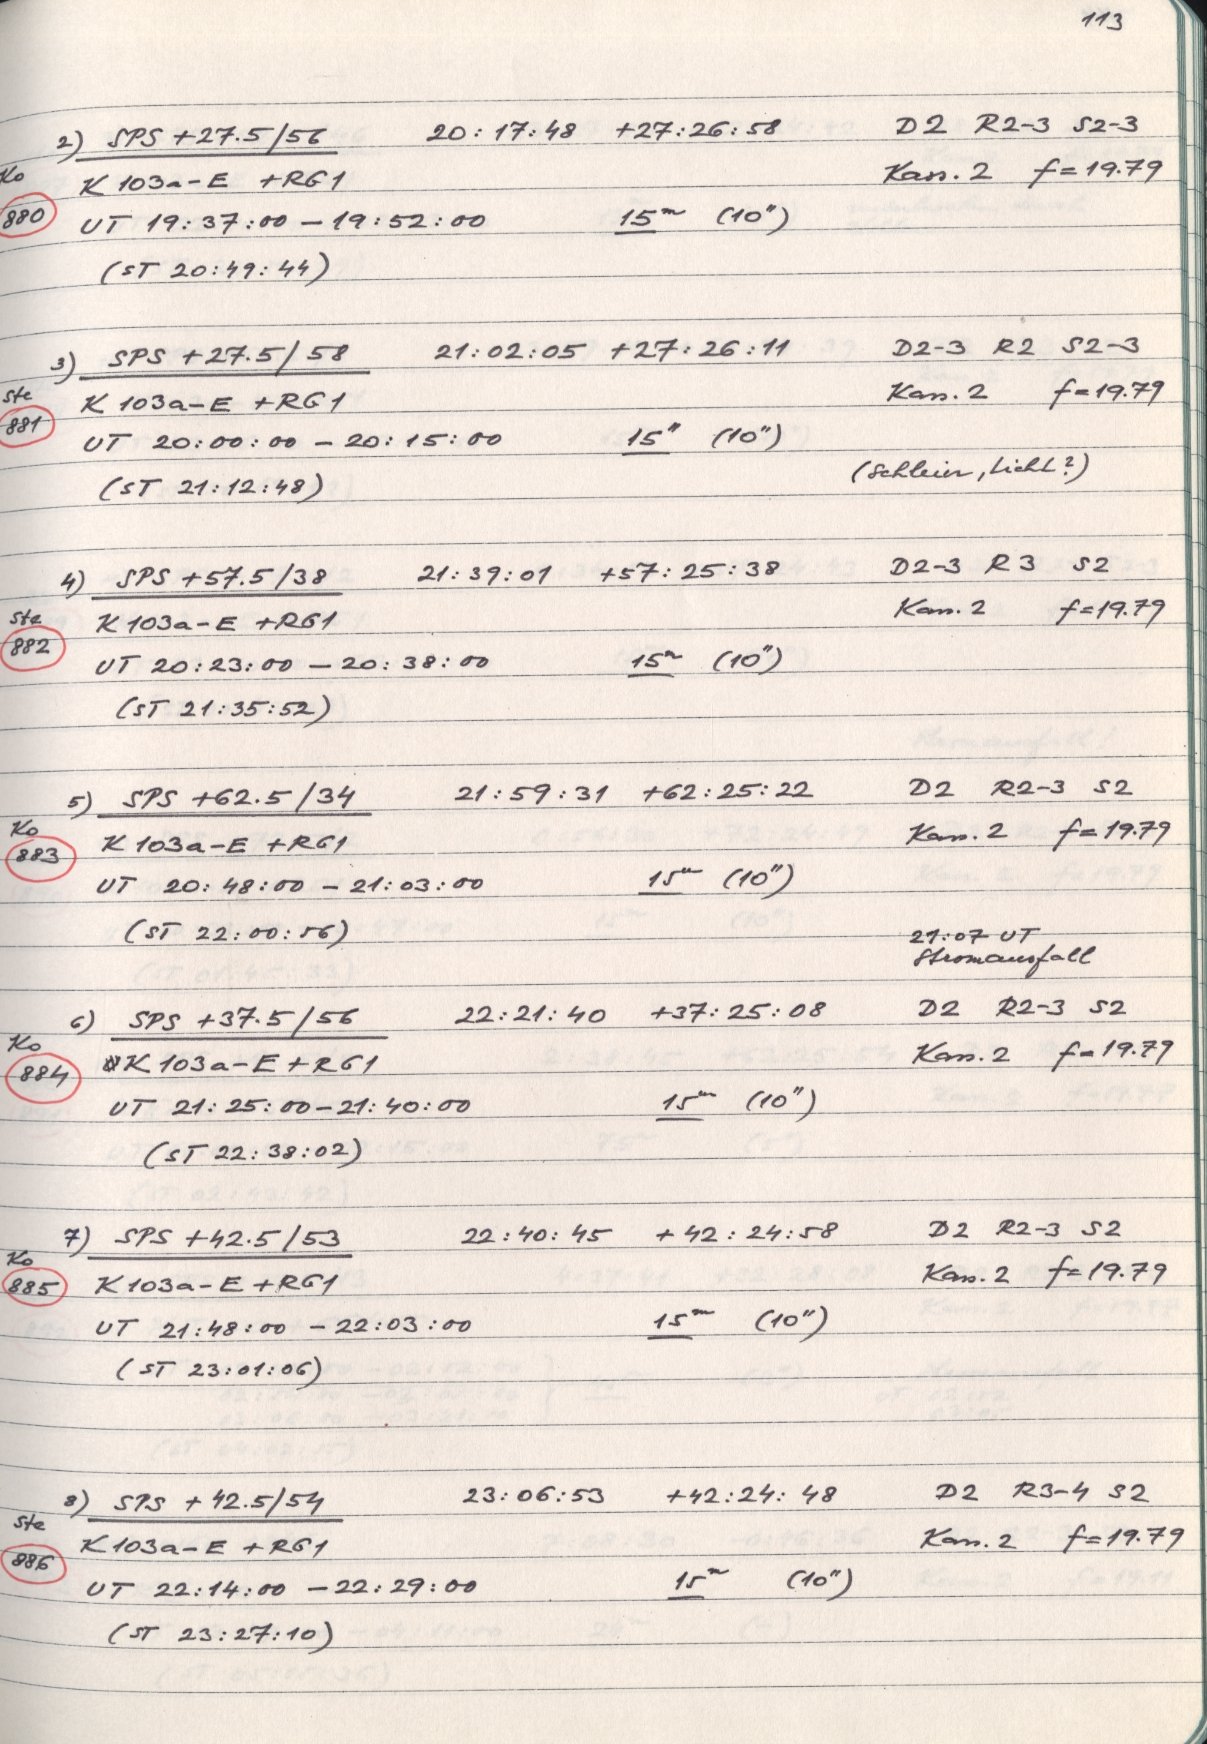 113
2) SPS +27.5/56 20:17:48 +27:26:58 D2 R2-3 S2-3
Ko K 103a-E +RG1 Kass. 2 f=19.79
880 UT 19:37:00 - 19:52:00 15m (10")
(ST 20:49:44)
3) SPS +27.5/58 21:02:05 +27:26:11 D2-3 R2 S2-3
Ste K 103a-E +RG1 Kass. 2 f=19.79
881 UT 20:00:00 - 20:15:00 15m (10")
(ST 21:12:48) (Schleier, Licht?)
4) SPS +57.5/38 21:39:01 +57:25:38 D2-3 R3 S2
Ste K 103a-E +RG1 Kass. 2 f=19.79
882 UT 20:23:00 - 20:38:00 15m (10")
(ST 21:35:52)
5) SPS +62.5/34 21:59:31 +62:25:22 D2 R2-3 S2
Ko K 103a-E +RG1 Kass. 2 f=19.79
883 UT 20:48:00 - 21:03:00 15m (10")
(ST 22:00:56) 21:07 UT
Stromausfall
6) SPS +37.5/56 22:21:40 +37:25:08 D2 R2-3 S2
Ko K 103a-E +RG1 Kass. 2 f=19.79
884 UT 21:25:00 - 21:40:00 15m (10")
(ST 22:38:02)
7) SPS +42.5/53 22:40:45 +42:24:58 D2 R2-3 S2
Ko K 103a-E +RG1 Kass. 2 f=19.79
885 UT 21:48:00 - 22:03:00 15m (10")
(ST 23:01:06)
8) SPS +42.5/54 23:06:53 +42:24:48 D2 R3-4 S2
Ste K 103a-E +RG1 Kass. 2 f=19.79
886 UT 22:14:00 - 22:29:00 15m (10")
(ST 23:27:10)